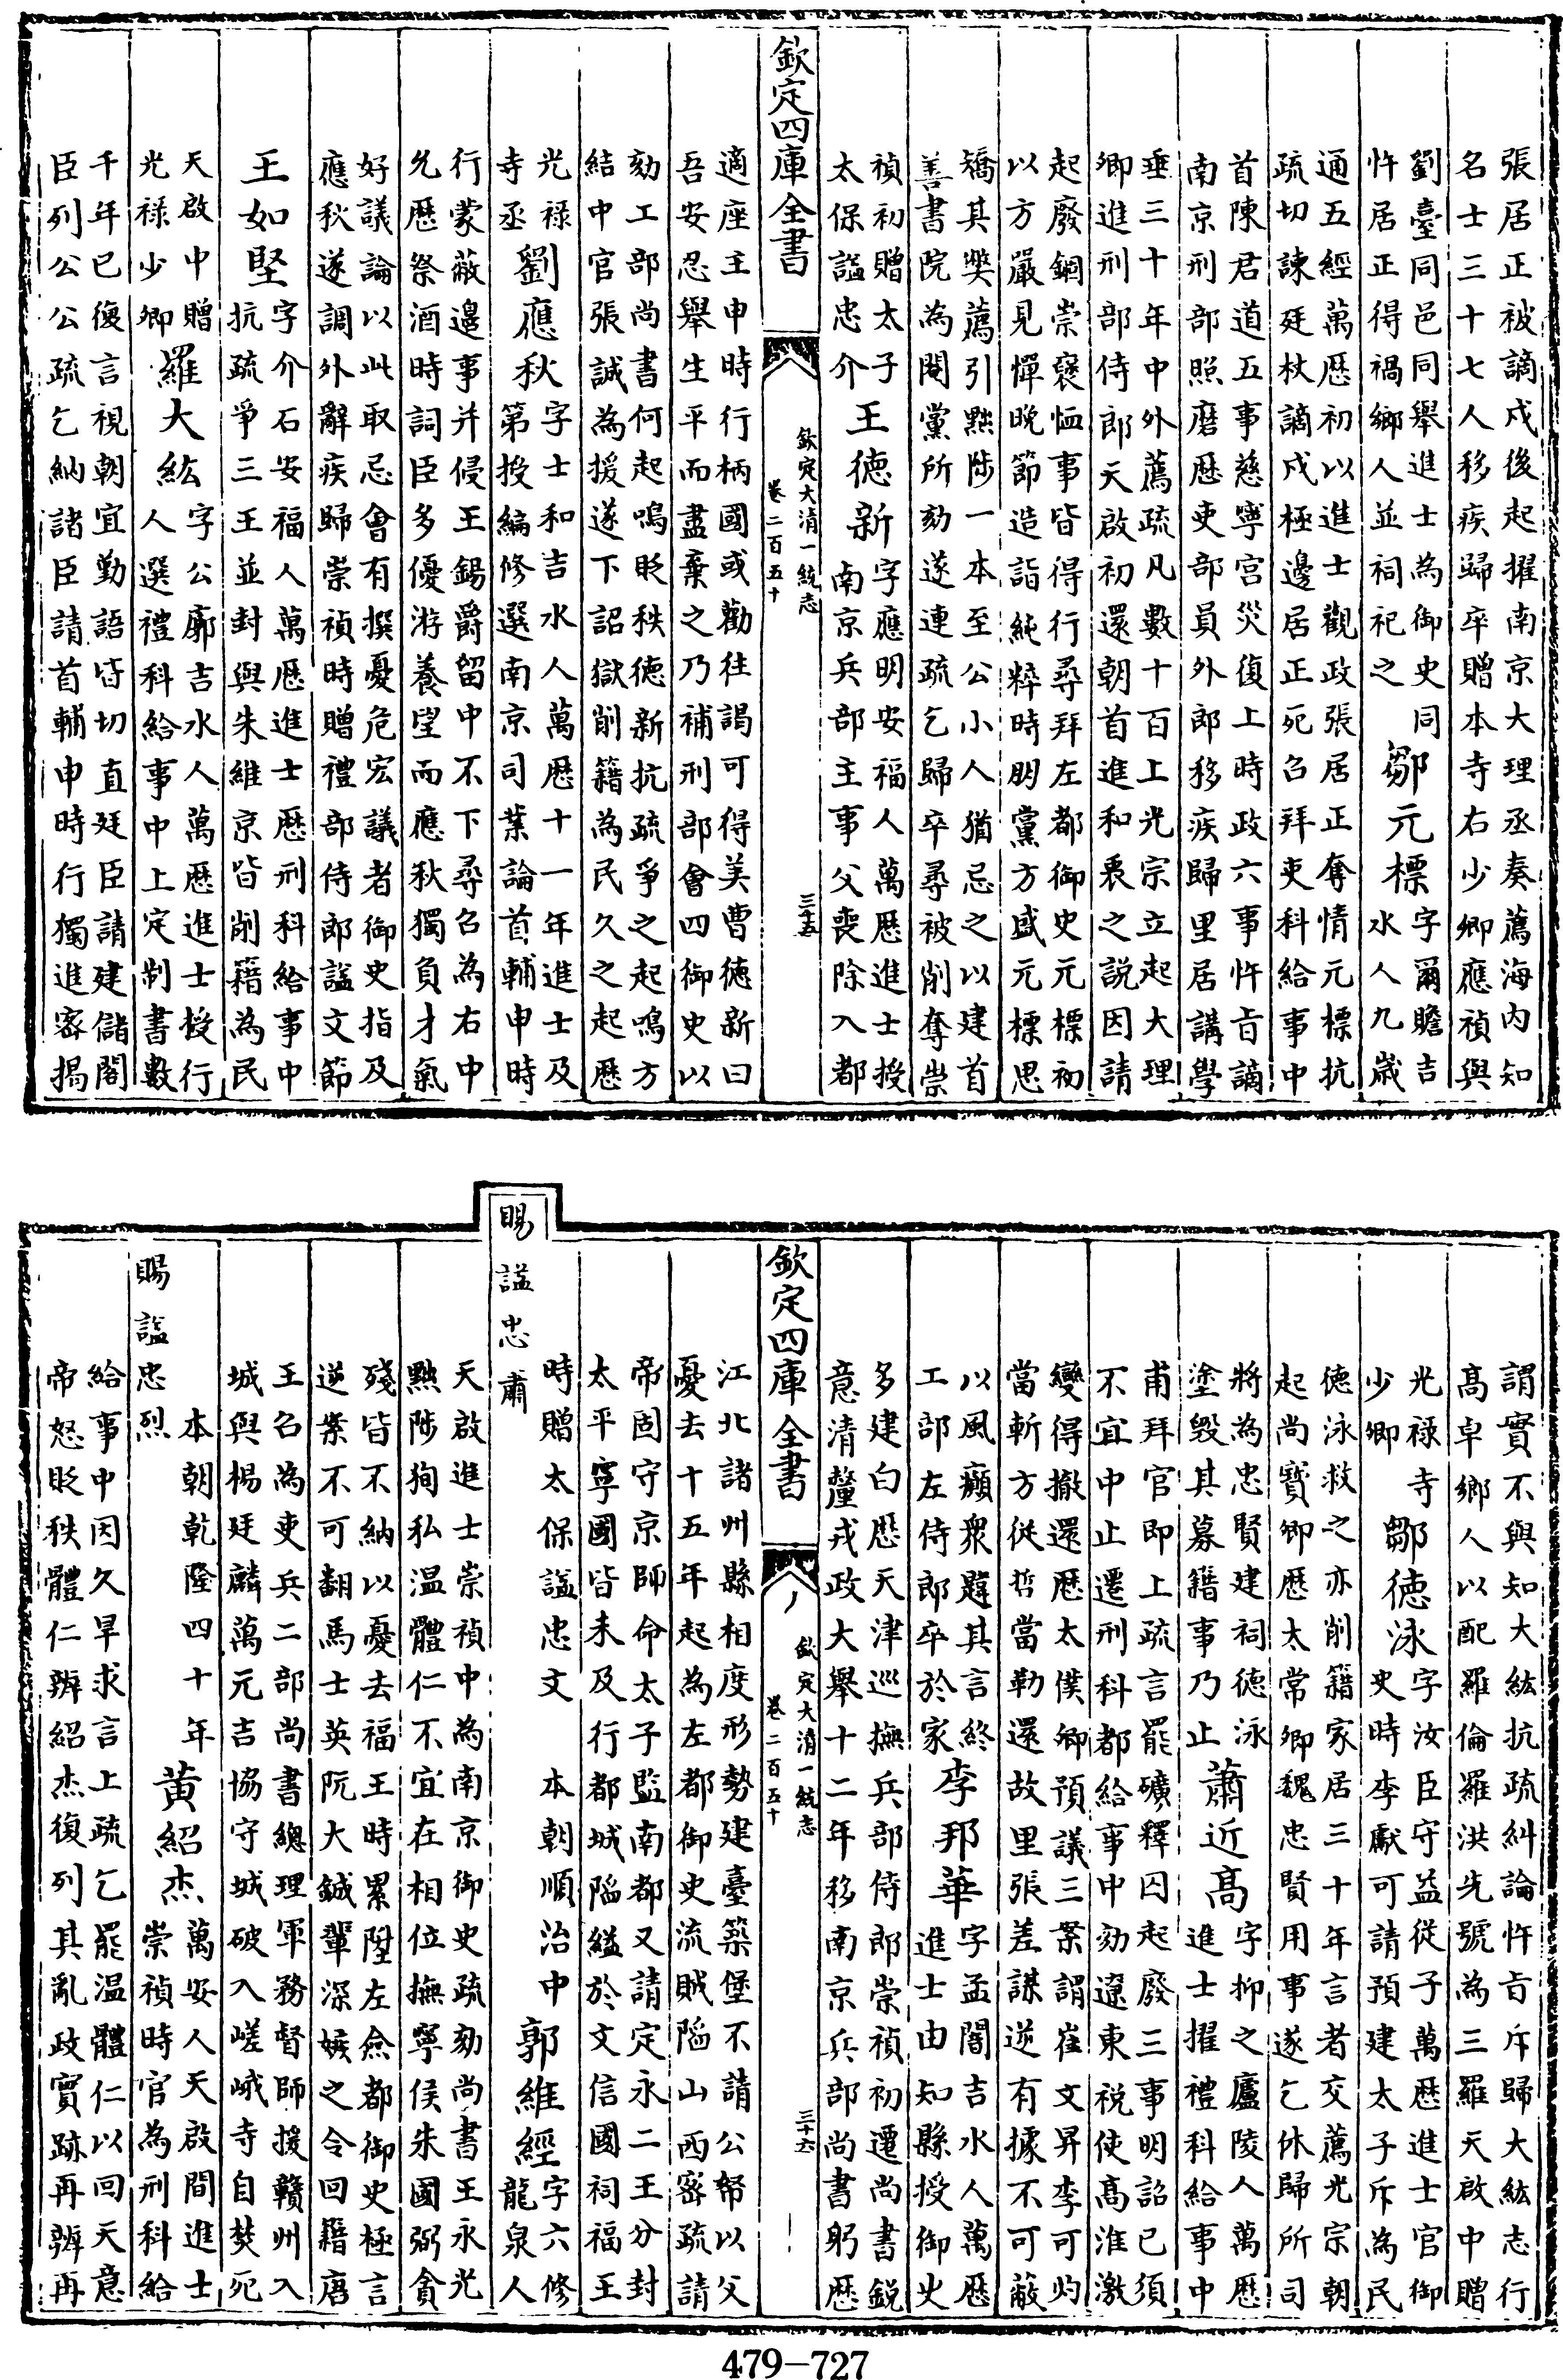 張居正被謫戍後起擢南京大理丞奏薦海内知
名士三十七人移疾歸卒贈本寺右少卿應禎與
劉臺同邑同舉進士為御史同
忤居正得禍鄉人並祠祀之
鄒元標
字爾瞻吉
水人九歳
通五經萬歴初以進士觀政張居正奪情元標抗
疏切諫廷杖謫戍極邊居正死召拜吏科給事中
首陳君道五事慈寧宫災復上時政六事忤㫖謫
南京刑部照磨歴吏部員外郎移疾歸里居講學
垂三十年中外薦疏凡數十百上光宗立起大理
卿進刑部侍郎天啟初還朝首進和衷之説因請
起廢錮崇褒恤事皆得行尋拜左都御史元標初
以方嚴見憚晚節造詣純粹時朋黨方盛元標思
矯其獘薦引黜陟一本至公小人猶忌之以建首
善書院為閹黨所劾遂連疏乞歸卒尋被削奪崇
禎初贈太子
太保諡忠介
王德新
字應明安福人萬歴進士授
南京兵部主事父喪除入都
欽定四庫全書
欽定大清一統志
卷二百五十
三十五
適座主申時行柄國或勸往謁可得美曹德新曰
吾安忍舉生平而盡棄之乃補刑部會四御史以
劾工部尚書何起鳴貶秩德新抗疏爭之起鳴方
結中官張誠為援遂下詔獄削籍為民久之起歴
光禄
寺丞
劉應秋
字士和吉水人萬歴十一年進士及
第授編修選南京司業論首輔申時
行蒙蔽邉事并侵王錫爵留中不下尋召為右中
允歴祭酒時詞臣多優游養望而應秋獨負才氣
好議論以此取忌會有撰憂危宏議者御史指及
應秋遂調外辭疾歸崇禎時贈禮部侍郎諡文節
王如堅
字介石安福人萬歴進士歴刑科給事中
抗疏爭三王並封與朱維京皆削籍為民
天啟中贈
光禄少卿
羅大紘
字公廓吉水人萬歴進士授行
人選禮科給事中上定制書數
千年已復言視朝宜勤語皆切直廷臣請建儲閣
臣列公公疏乞納諸臣請首輔申時行獨進宻揭
謂實不與知大紘抗疏糾論忤㫖斥歸大紘志行
髙卓鄉人以配羅倫羅洪先號為三羅天啟中贈
光禄寺
少卿
鄒德泳
字汝臣守益從子萬歴進士官御
史時李獻可請預建太子斥為民
德泳救之亦削籍家居三十年言者交薦光宗朝
起尚寳卿歴太常卿魏忠賢用事遂乞休歸所司
將為忠賢建祠德泳
塗毁其募籍事乃止
蕭近髙
字抑之廬陵人萬歴
進士擢禮科給事中
甫拜官即上疏言罷礦釋囚起廢三事明詔已須
不宜中止遷刑科都給事中劾遼東税使髙淮激
變得撤還歴太僕卿預議三案謂崔文昇李可灼
當斬方從哲當勒還故里張差謀逆有據不可蔽
以風癲衆韙其言終
工部左侍郎卒於家
李邦華
字孟闇吉水人萬歴
進士由知縣授御史
多建白歴天津巡撫兵部侍郎崇禎初遷尚書鋭
意清釐戎政大舉十二年移南京兵部尚書躬歴
欽定四庫全書
欽定大清一統志
卷二百五十
三十六
江北諸州縣相度形勢建臺築堡不請公帑以父
憂去十五年起為左都御史流賊陷山西宻疏請
帝固守京師命太子監南都又請定永二王分封
太平寧國皆未及行都城陷縊於文信國祠福王
時贈太保諡忠文 本朝順治中
賜諡忠肅
郭維經
字六修
龍泉人
天啟進士崇禎中為南京御史疏劾尚書王永光
黜陟狥私温體仁不宜在相位撫寧侯朱國弼貪
殘皆不納以憂去福王時累陞左僉都御史極言
逆案不可翻馬士英阮大鋮輩深嫉之令回籍唐
王召為吏兵二部尚書總理軍務督師援贛州入
城與楊廷麟萬元吉協守城破入嵯峨寺自焚死
本朝乾隆四十年
賜諡忠烈
黄紹杰
萬安人天啟間進士
崇禎時官為刑科給
給事中因久旱求言上疏乞罷温體仁以回天意
帝怒貶秩體仁辨紹杰復列其亂政實跡再辨再
479-727